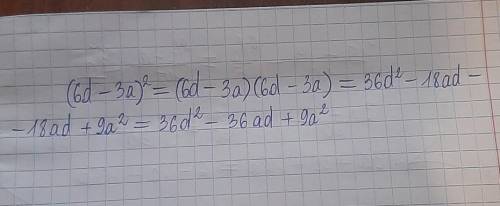 (6d - 3a)² = (6d - 3a)(6d - 3a) = 36d² - 18ad -
- 18ad + 9a² = 36d² - 36ad + 9a²